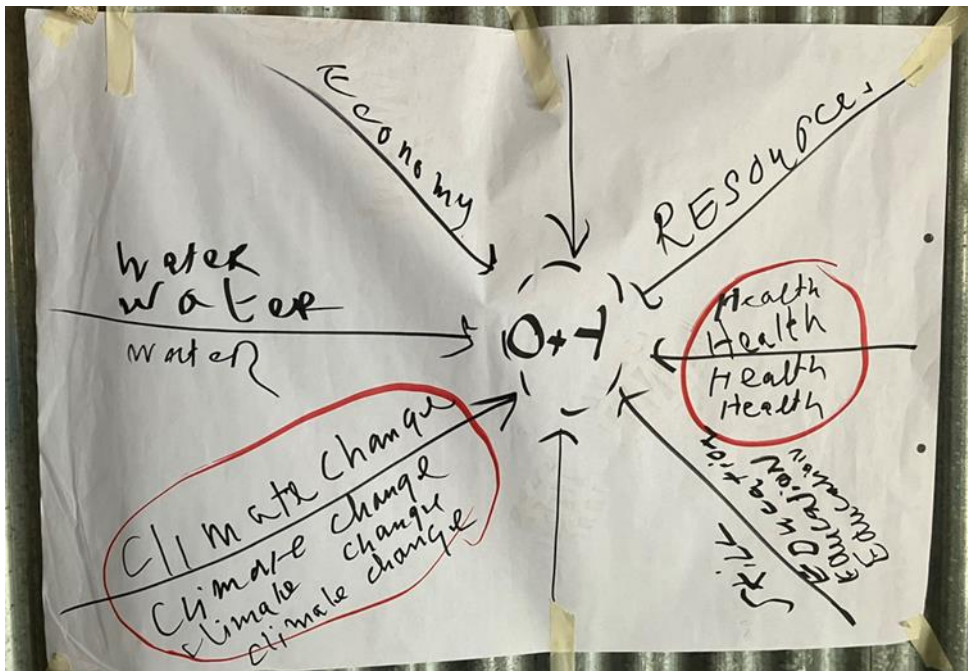 Economy
RESources
water
water
water
0+4
Health
Health
Health
Health
climate change
climate change
climate change
climate change
EDucation
Education
Education